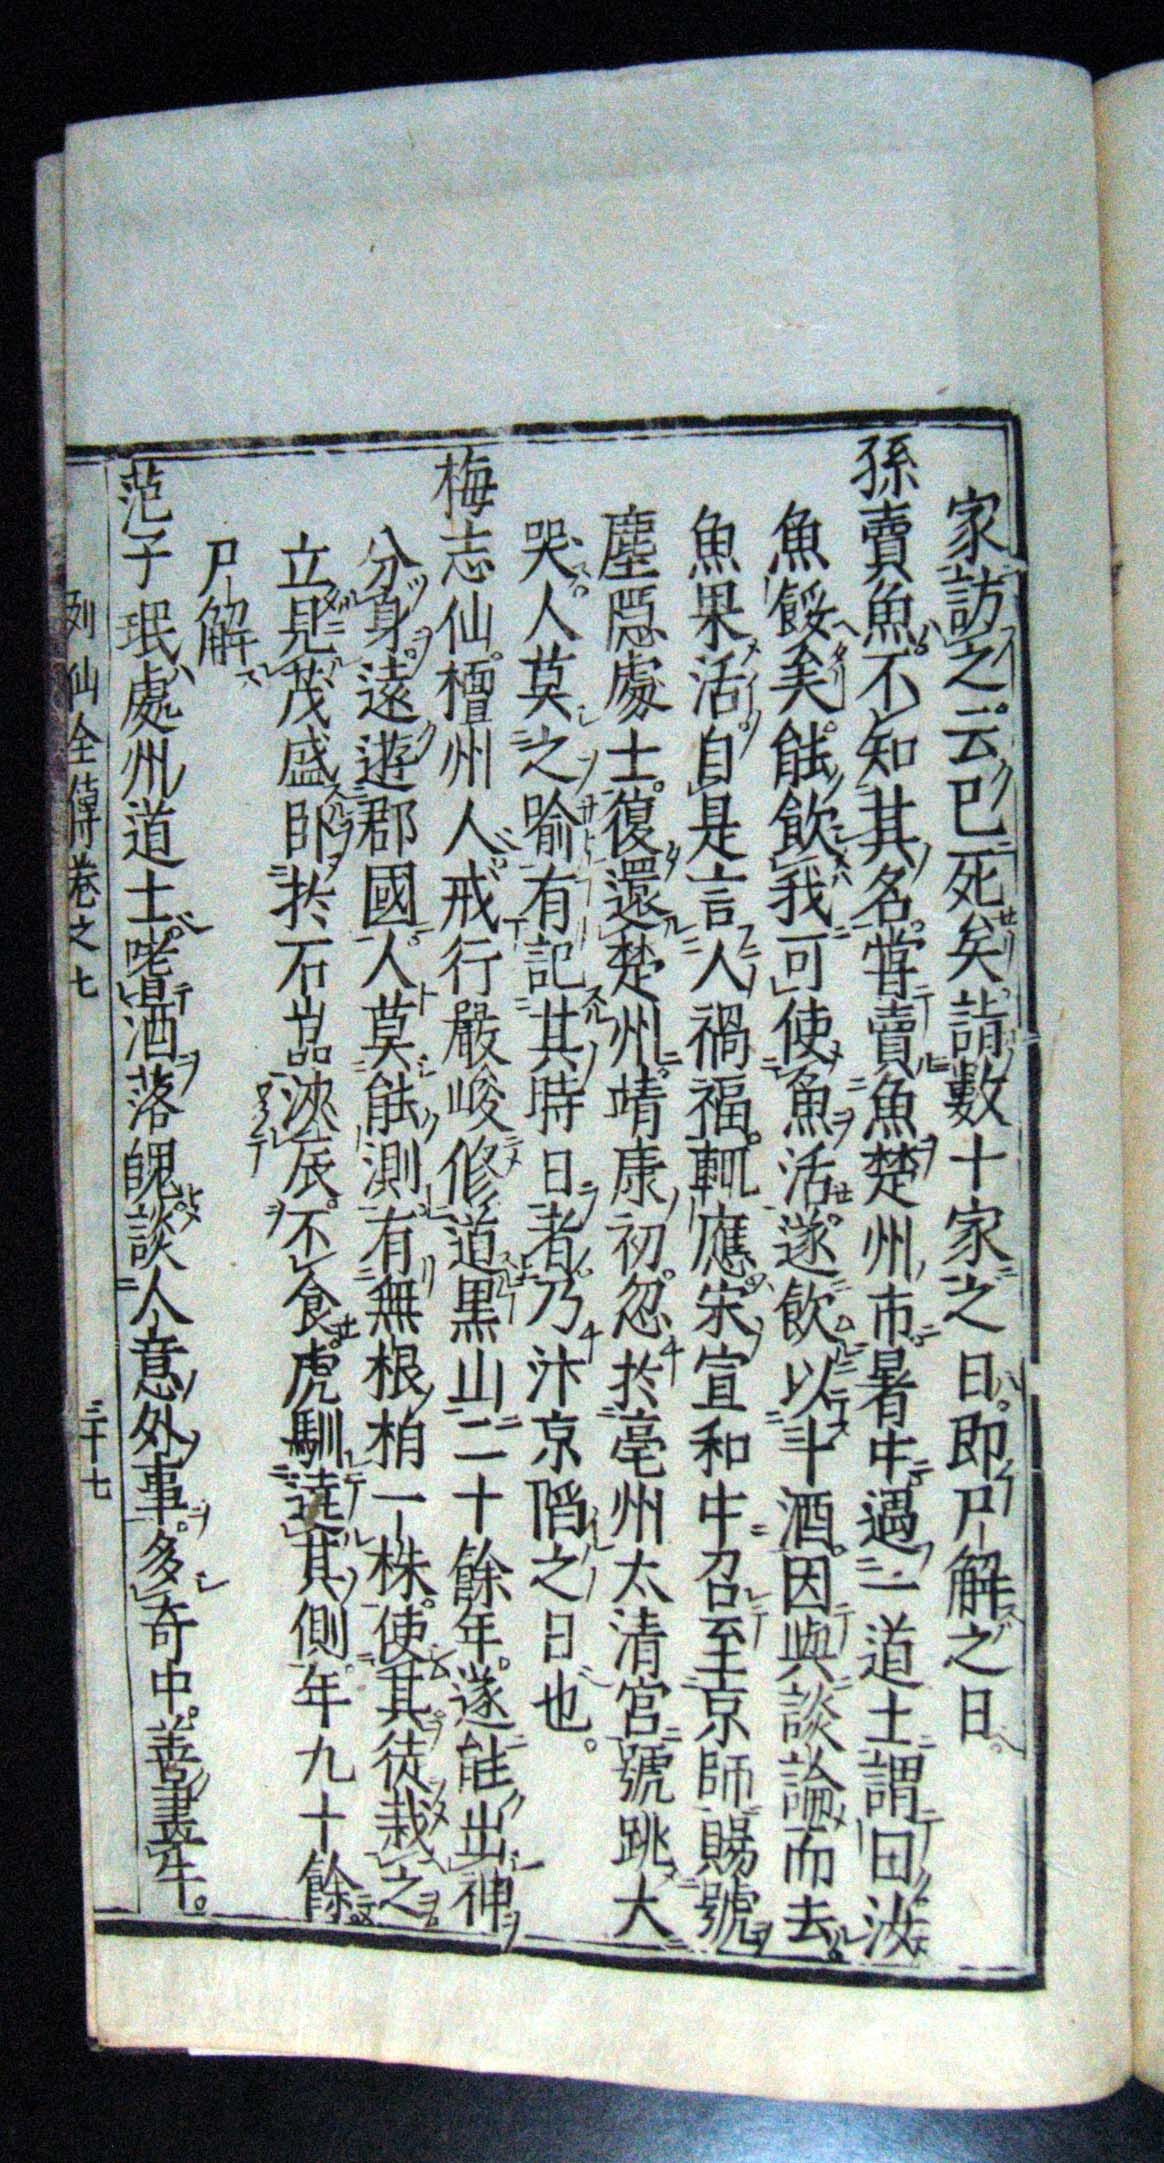 家訪之。云已死矣。詣數十家之日。即尸解之日。
孫賣魚。不知其名。嘗賣魚楚州市。暑中。遇一道士謂曰汝
魚餒矣。能飲我可使魚活。遂飲以斗酒。因與談論而去。
魚果活。自是言人禍福。輒應。宋宣和中召至京師賜號
塵隱處士。復還楚州。靖康初。忽於亳州太清宮號跳大
哭。人莫之喻。有記其時日者。乃汴京陷之日也。
梅志仙。檀州人。戒行嚴峻修道黑山二十餘年。遂能出神
分身。遠遊郡國。人莫能測。有無根柏一株。使其徒栽之
立見茂盛。臥於石嵓浹辰。不食。虎馴遶其側。年九十餘。
尸解
范子珉。處州道士。嗜酒落魄。談人意外事。多奇中。善畫牛。
列仙全傳卷之七 二十七